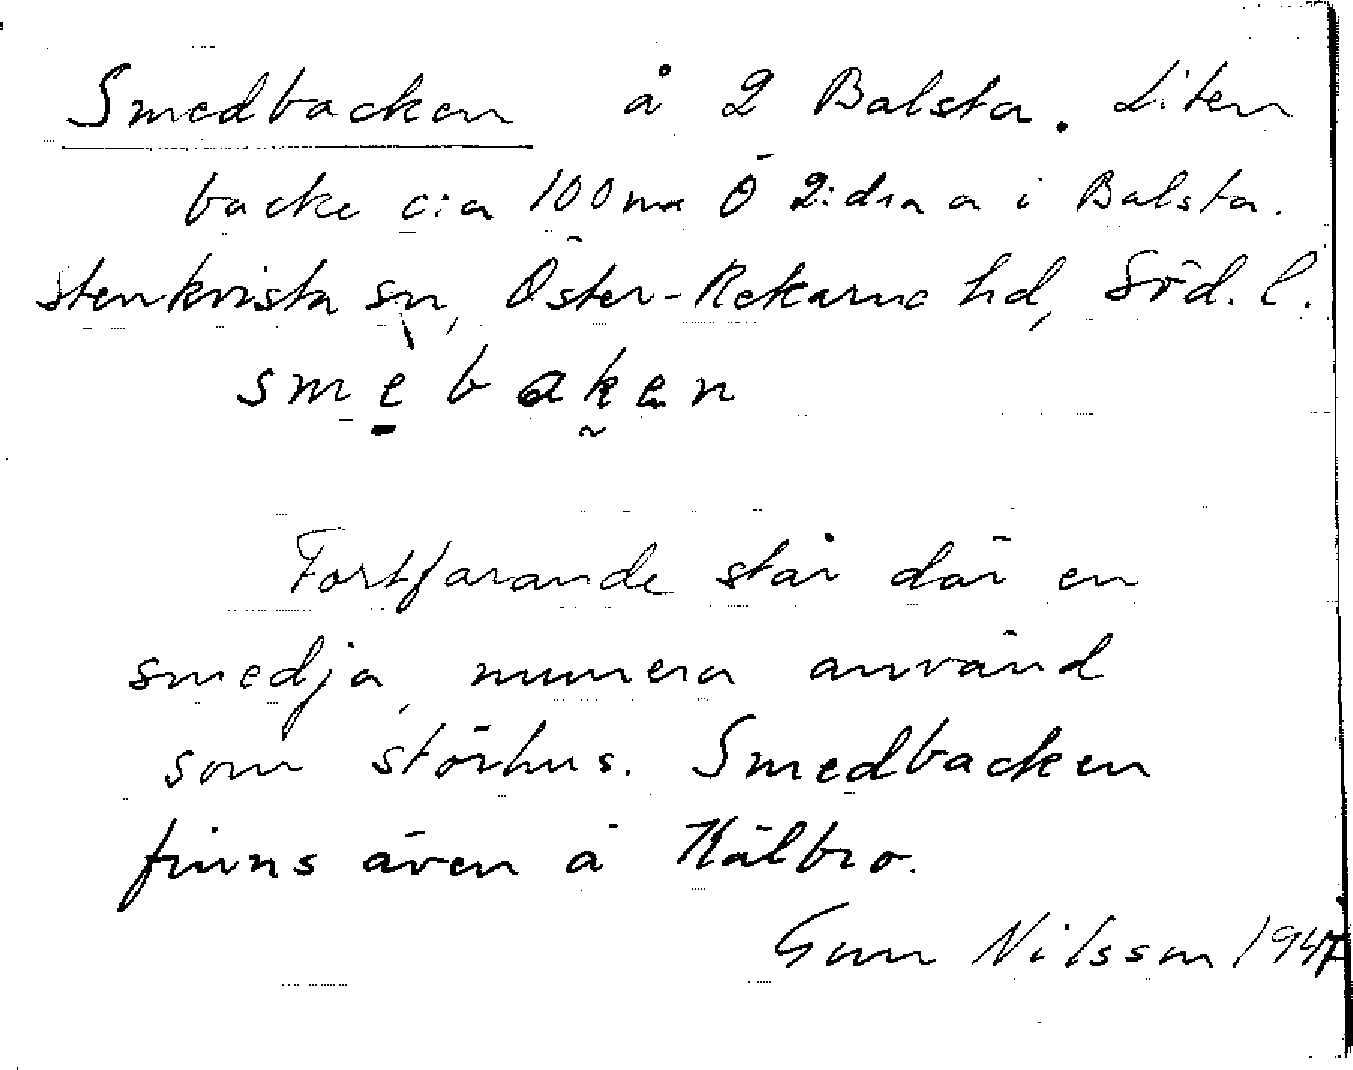 Smedbacken å 2 Balsta. Liten
backe c:a 100 m Ö 2:dra i Balsta.
Stenkvista sn, Öster-Rekarne hd, Söd. l.
smèbaken
Fortfarande står där en
smedja, numera använd
som störhus. Smedbacken
finns även å Kälbro.
Gun Nilsson 1947